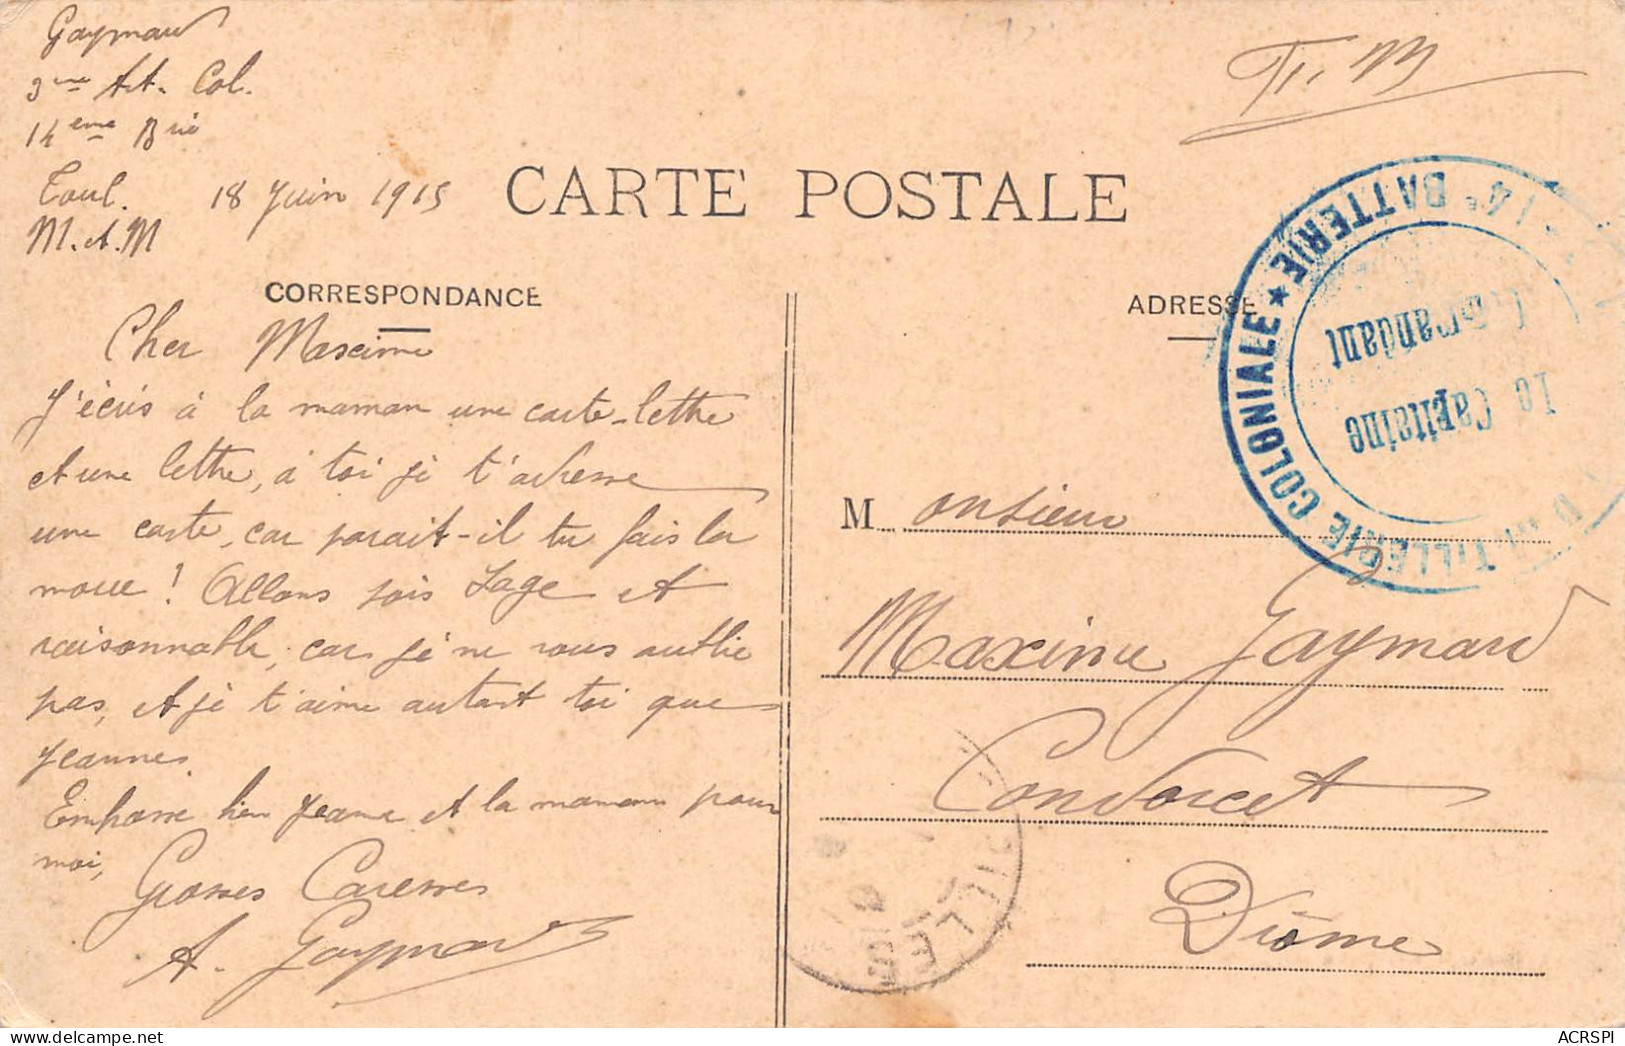 Gaymard
3me Art. Col.
14eme Brie
Toul. 18 Juin 1915
M. et. M
F. M
CARTE POSTALE
CORRESPONDANCE
ADRESSE
Cher Maxime
J'écris à la maman une carte-lettre
et une lettre, à toi je t'adresse
une carte, car parait-il tu fais la
moue! Allons sois sage et
raisonnable, car je ne vous oublie
pas, et je t'aime autant toi que
Jeanne.
Embrasse bien Jeanne et la maman pour
moi,
Grosses Caresses
A. Gaymard
Monsieur
Maxime Gaymard
Condorcet
Drôme
ARTILLERIE COLONIALE ★ 14e BATTERIE
Le Capitaine
Commandant
ACRSPI